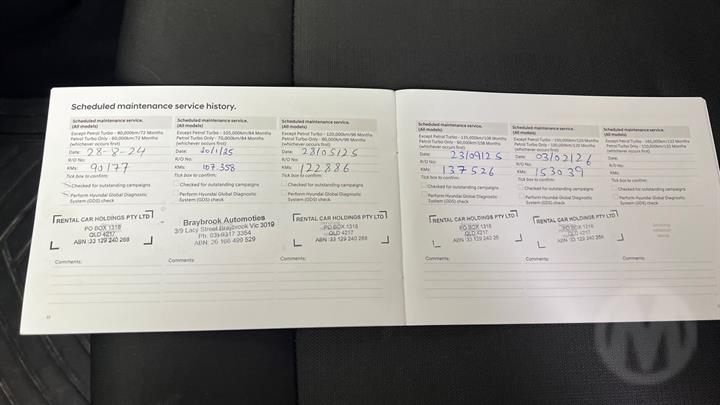 Scheduled maintenance service history.
Scheduled maintenance service.
(All models)
Except Petrol Turbo - 90,000km/72 Months
Petrol Turbo Only - 60,000km/72 Months
(whichever occurs first)
Date: 28-8-24
R/O No:
KMs: 90177
Tick box to confirm:
Checked for outstanding campaigns
Perform Hyundai Global Diagnostic
System (GDS) check
RENTAL CAR HOLDINGS PTY LTD
PO BOX 1318
QLD 4217
ABN :33 129 240 268
Comments:
Scheduled maintenance service.
(All models)
Except Petrol Turbo - 105,000km/84 Months
Petrol Turbo Only - 70,000km/84 Months
(whichever occurs first)
Date: 20/1/25
R/O No:
KMs: 107.358
Tick box to confirm:
Checked for outstanding campaigns
Perform Hyundai Global Diagnostic
System (GDS) check
Braybrook Automoties
3/9 Lacy Street Braybrook Vic 3019
Ph: 03) 9317 3354
ABN: 26 166 499 529
Comments:
Scheduled maintenance service.
(All models)
Except Petrol Turbo - 120,000km/96 Months
Petrol Turbo Only - 80,000km/96 Months
(whichever occurs first)
Date: 23/05/25
R/O No:
KMs: 122886
Tick box to confirm:
Checked for outstanding campaigns
Perform Hyundai Global Diagnostic
System (GDS) check
RENTAL CAR HOLDINGS PTY LTD
PO BOX 1318
QLD 4217
ABN :33 129 240 268
Comments:
Scheduled maintenance service.
(All models)
Except Petrol Turbo - 135,000km/108 Months
Petrol Turbo Only - 90,000km/108 Months
(whichever occurs first)
Date: 23/09/25
R/O No:
KMs: 137526
Tick box to confirm:
Checked for outstanding campaigns
Perform Hyundai Global Diagnostic
System (GDS) check
RENTAL CAR HOLDINGS PTY LTD
PO BOX 1318
QLD 4217
ABN :33 129 240 26
Comments:
Scheduled maintenance service.
(All models)
Except Petrol Turbo - 150,000km/120 Months
Petrol Turbo Only - 100,000km/120 Months
(whichever occurs first)
Date: 03/02/26
R/O No:
KMs: 153039
Tick box to confirm:
Checked for outstanding campaigns
Perform Hyundai Global Diagnostic
System (GDS) check
RENTAL CAR HOLDINGS PTY LTD
PO BOX 1318
QLD 4217
ABN :33 129 240 268
Comments:
Scheduled maintenance service.
(All models)
Except Petrol Turbo - 165,000km/132 Months
Petrol Turbo Only - 110,000km/132 Months
(whichever occurs first)
Date:
R/O No:
KMs:
Tick box to confirm:
Checked for outstanding campaigns
Perform Hyundai Global Diagnostic
System (GDS) check
Comments:
M